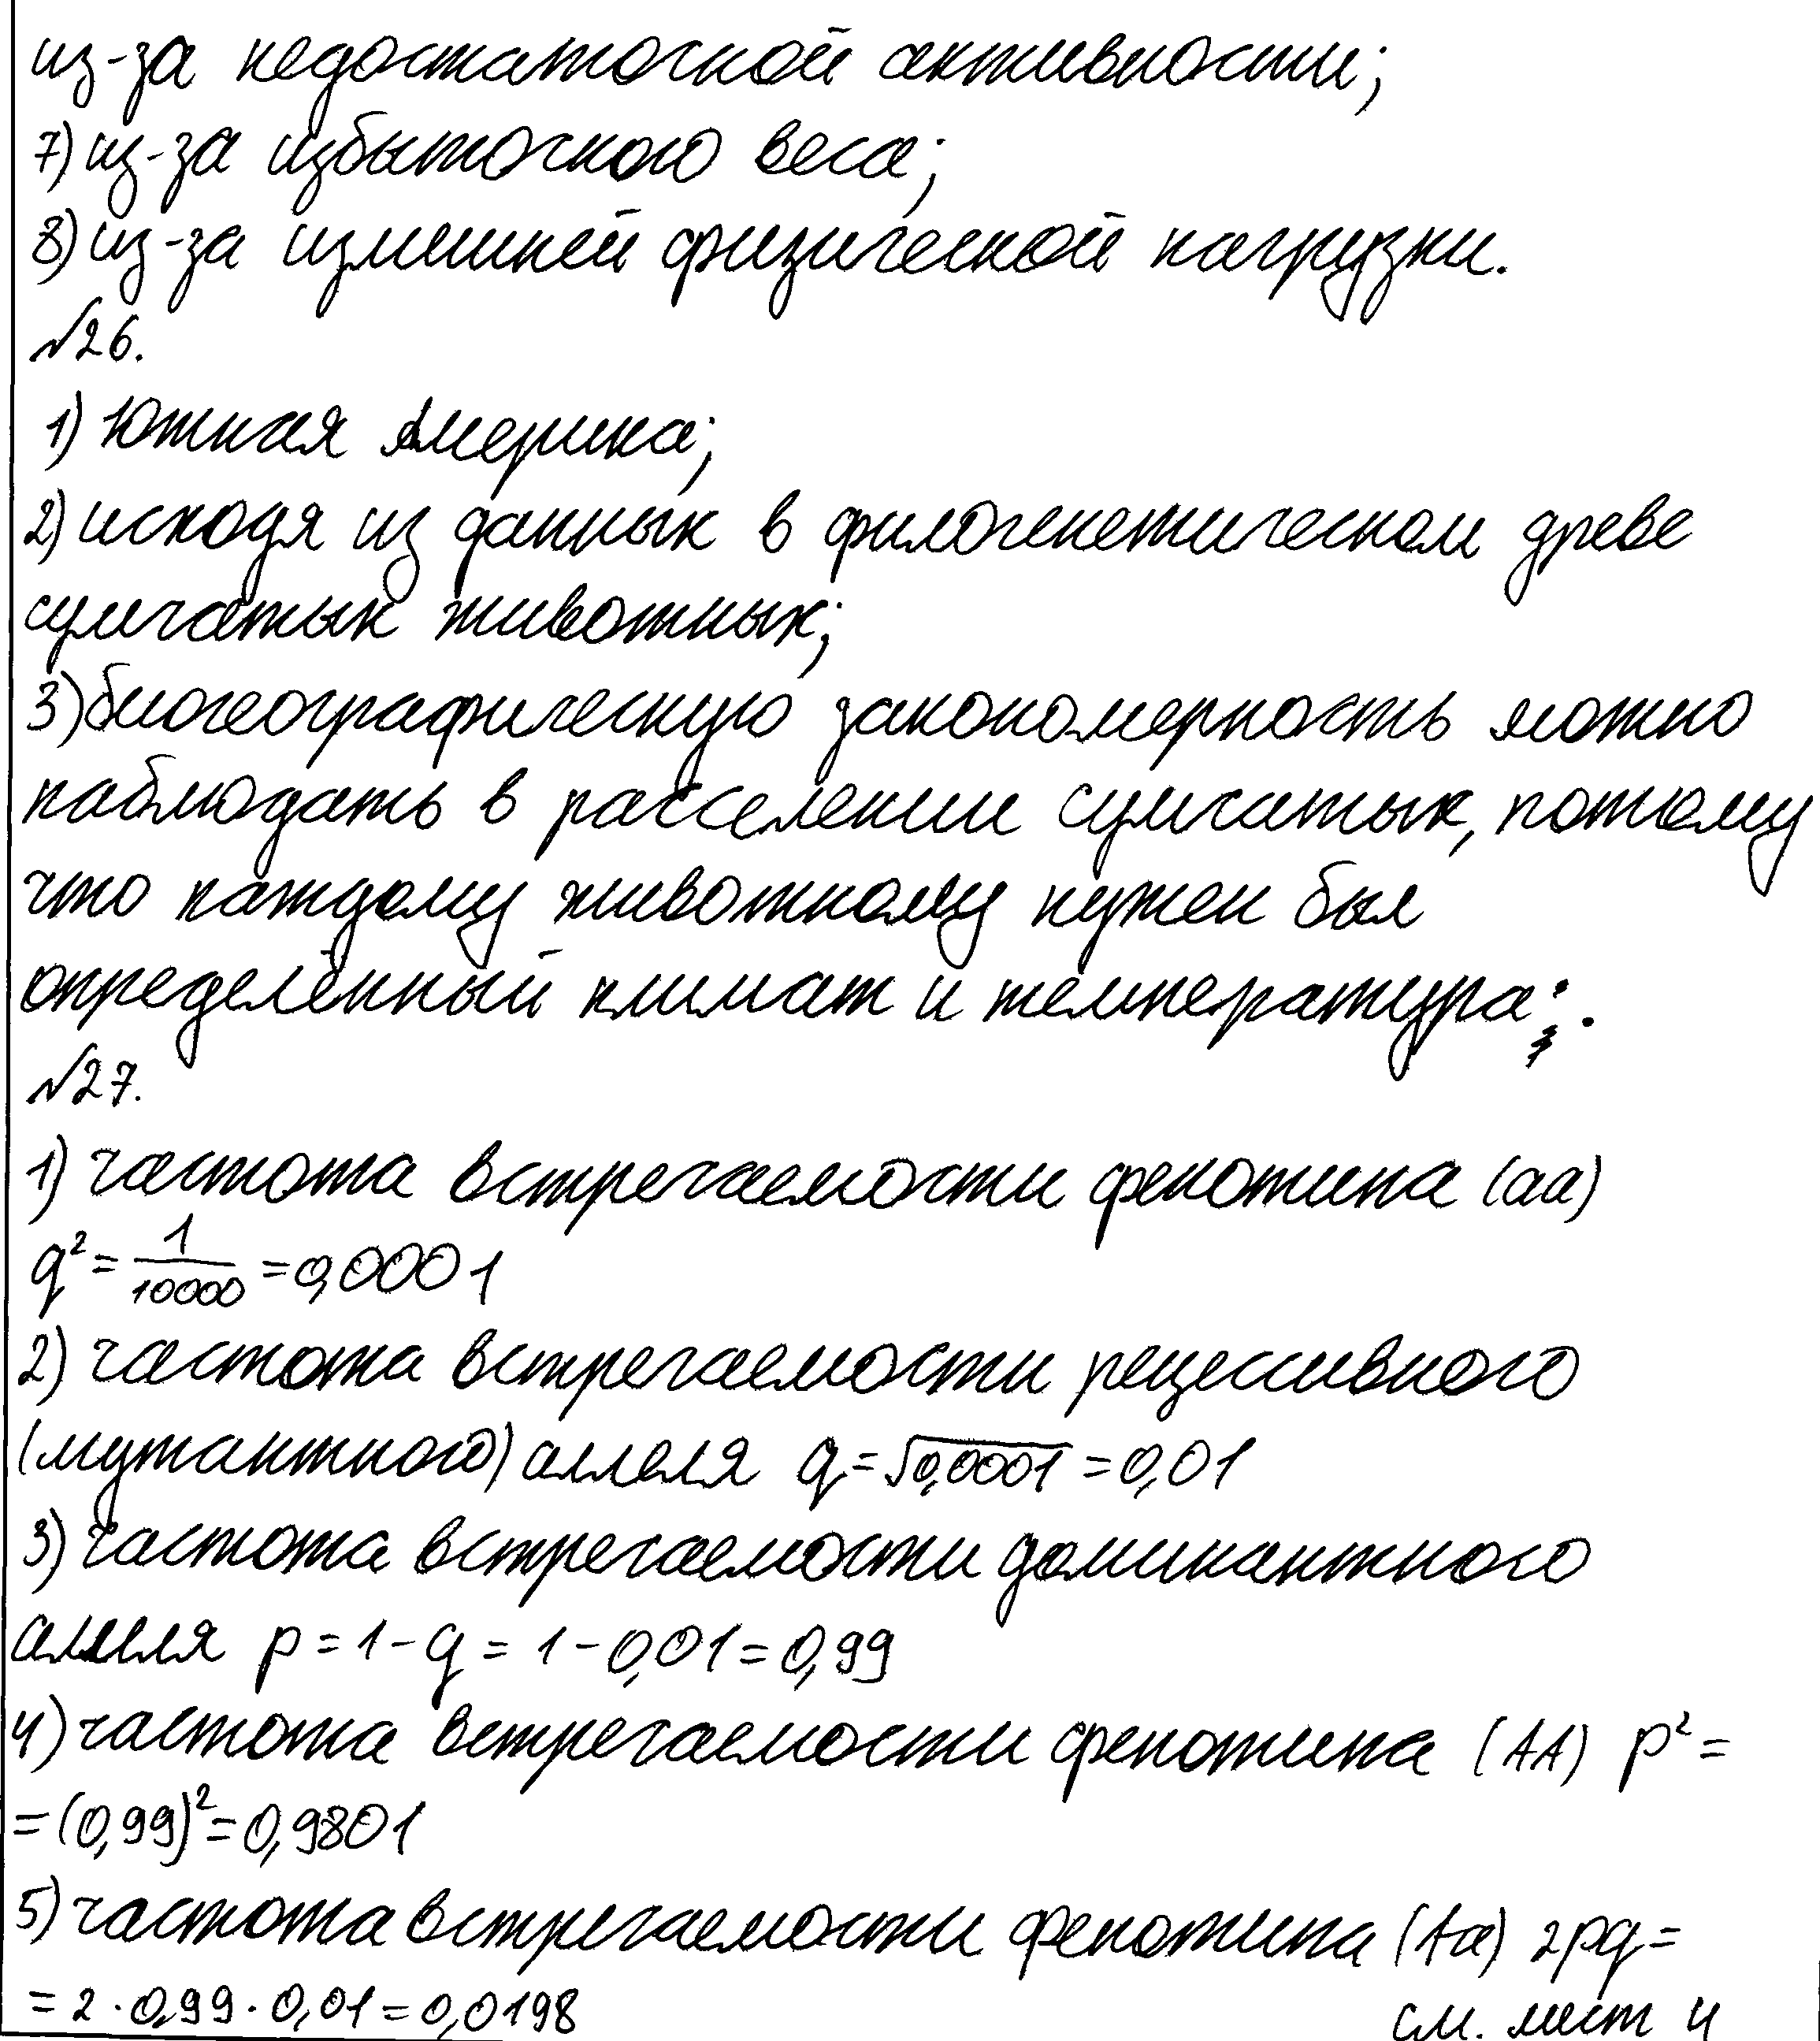 из-за недостаточной активности;
7) из-за избыточного веса;
8) из-за излишней физической нагрузки.
№26.
1) Южная Америка;
2) исходя из данных в филогенетическом древе
сумчатых животных;
3) биогеографическую закономерность можно
наблюдать в расселении сумчатых, потому
что каждому животному нужен был
определённый климат и температура;.
№27.
1) частота встречаемости фенотипа (аа)
q² = 1/10000 = 0,0001
2) частота встречаемости рецессивного
(мутантного) аллеля q = √0,0001 = 0,01
3) частота встречаемости доминантного
аллеля p = 1 - q = 1 - 0,01 = 0,99
4) частота встречаемости фенотипа (АА) p² =
= (0,99)² = 0,9801
5) частота встречаемости фенотипа (Аа) 2pq =
= 2 · 0,99 · 0,01 = 0,0198
см. лист 4